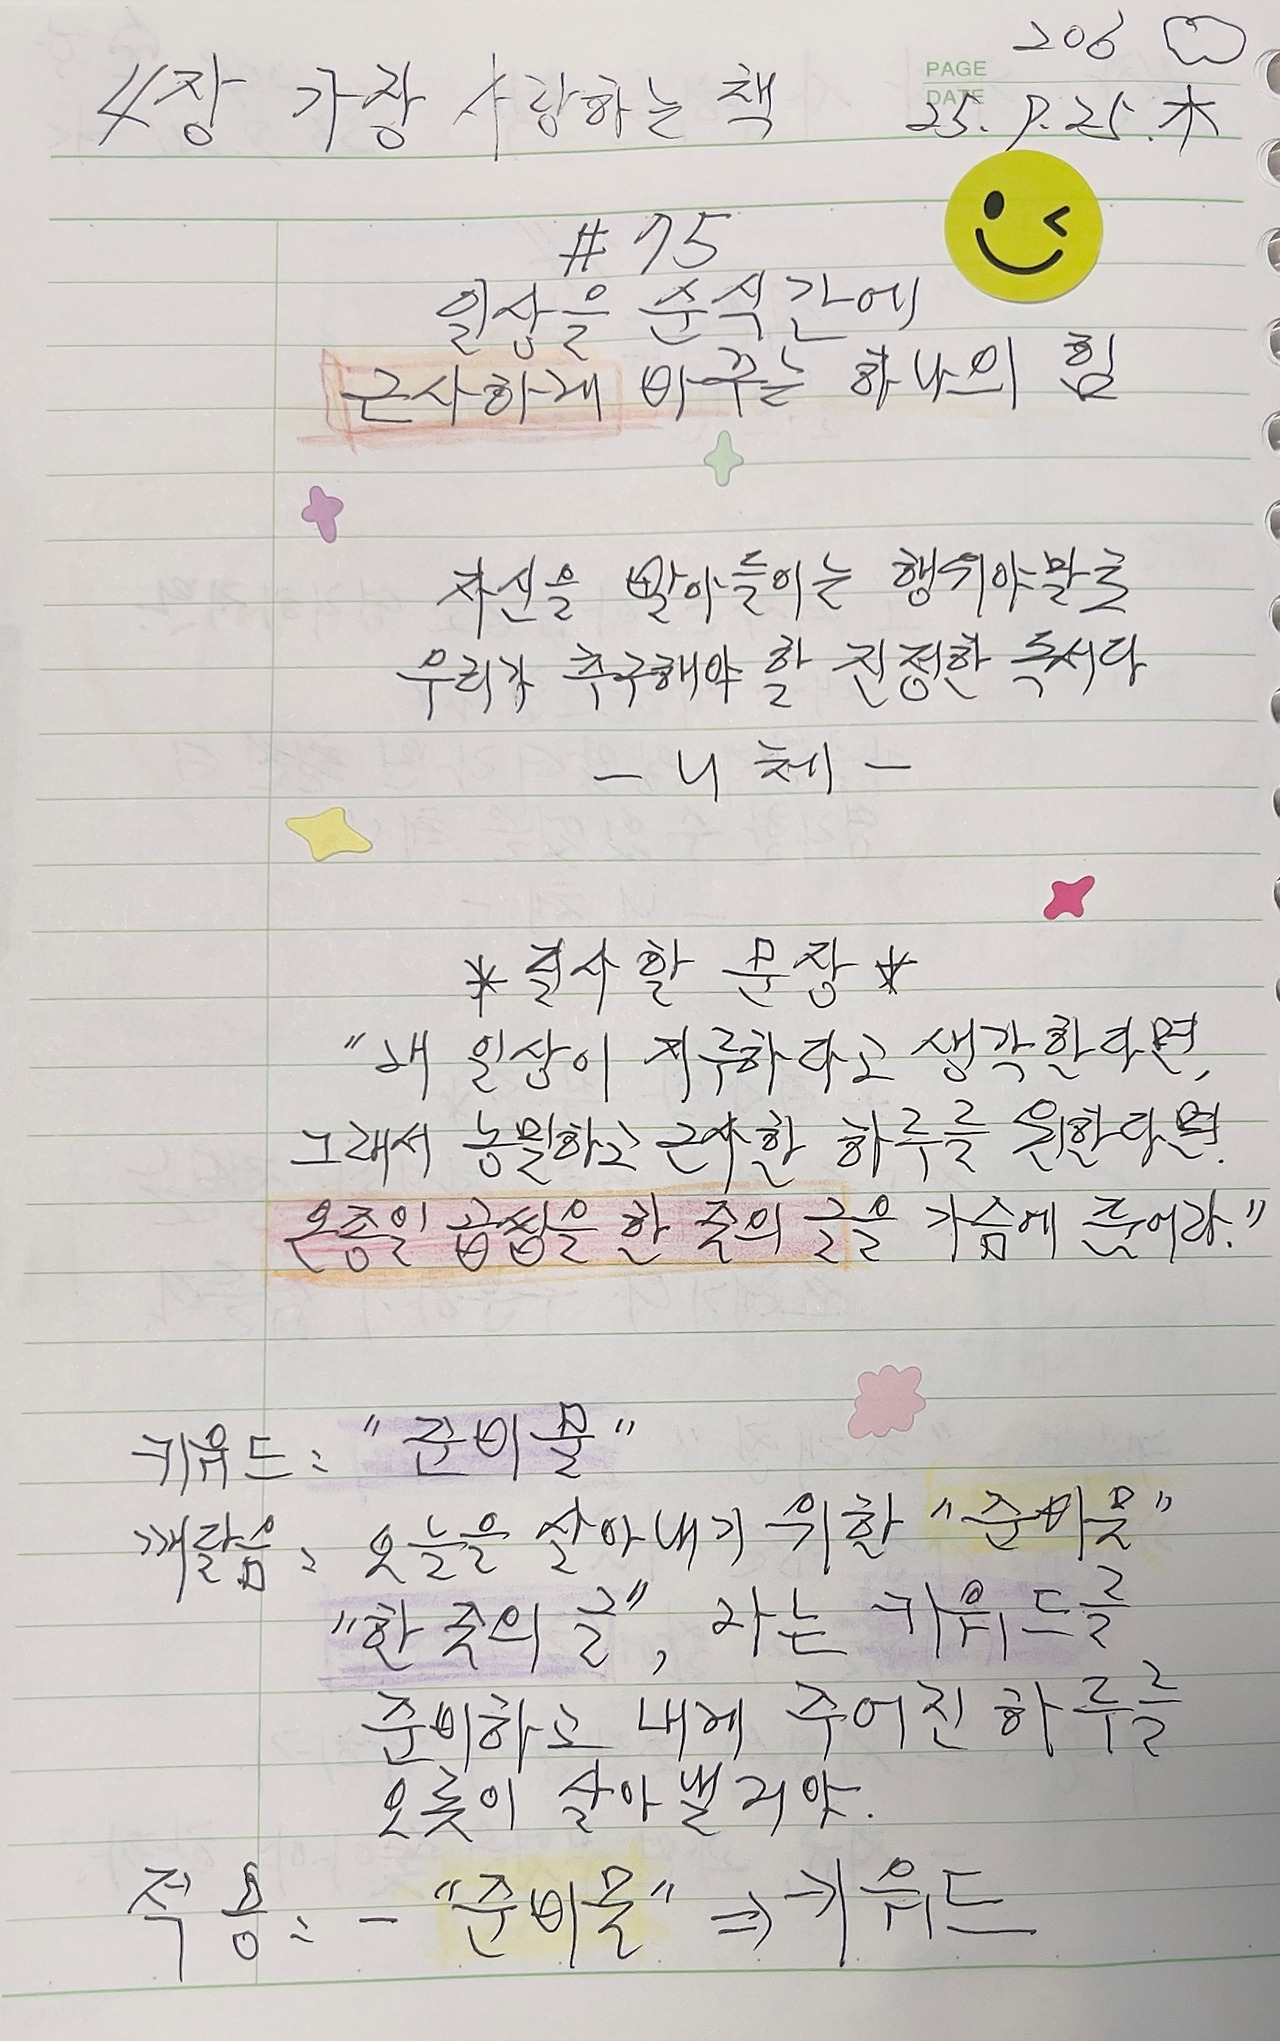 206
PAGE
DATE
4장 가장 사랑하는 책 25. 9. 25. 木
#75
일상을 순식간에
근사하게 바꾸는 하나의 힘
자신을 받아들이는 행위야말로
우리가 추구해야 할 진정한 독서다
- 니체 -
*필사할 문장*
"내 일상이 지루하다고 생각한다면,
그래서 농밀하고 근사한 하루를 원한다면.
온종일 곱씹을 한 줄의 글을 가슴에 품어라."
키워드: "준비물"
깨달음: 오늘을 살아내기 위한 "준비물"
"한 줄의 글", 라는 키워드를
준비하고 내게 주어진 하루를
오롯이 살아낼 거야.
적용: - "준비물" ⇒ 키워드